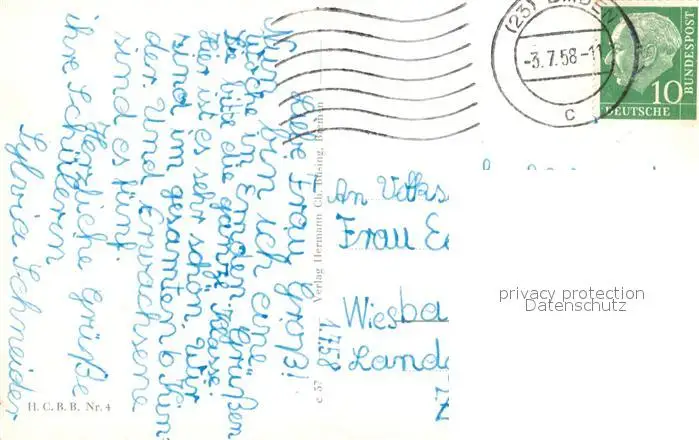 (23)
-3.7.58-11
c
10
DEUTSCHE
BUNDESPOST
Liebe Frau Groß!
Nun bin ich eine
Woche in Emden. Grüßen
Sie bitte die ganze Klasse.
Hier ist es sehr schön. Wir
sind im gesamten 6 Kin
der. Und Erwachsene
sind es fünf.
Herzliche Grüße
ihre Schülerin
Sylvia Schneider
1.7.58
Verlag Hermann Ch. Büsing, Bremen
c 57
H. C. B. B. Nr. 4
An Volks
Frau
Wiesba
Lande
privacy protection
Datenschutz